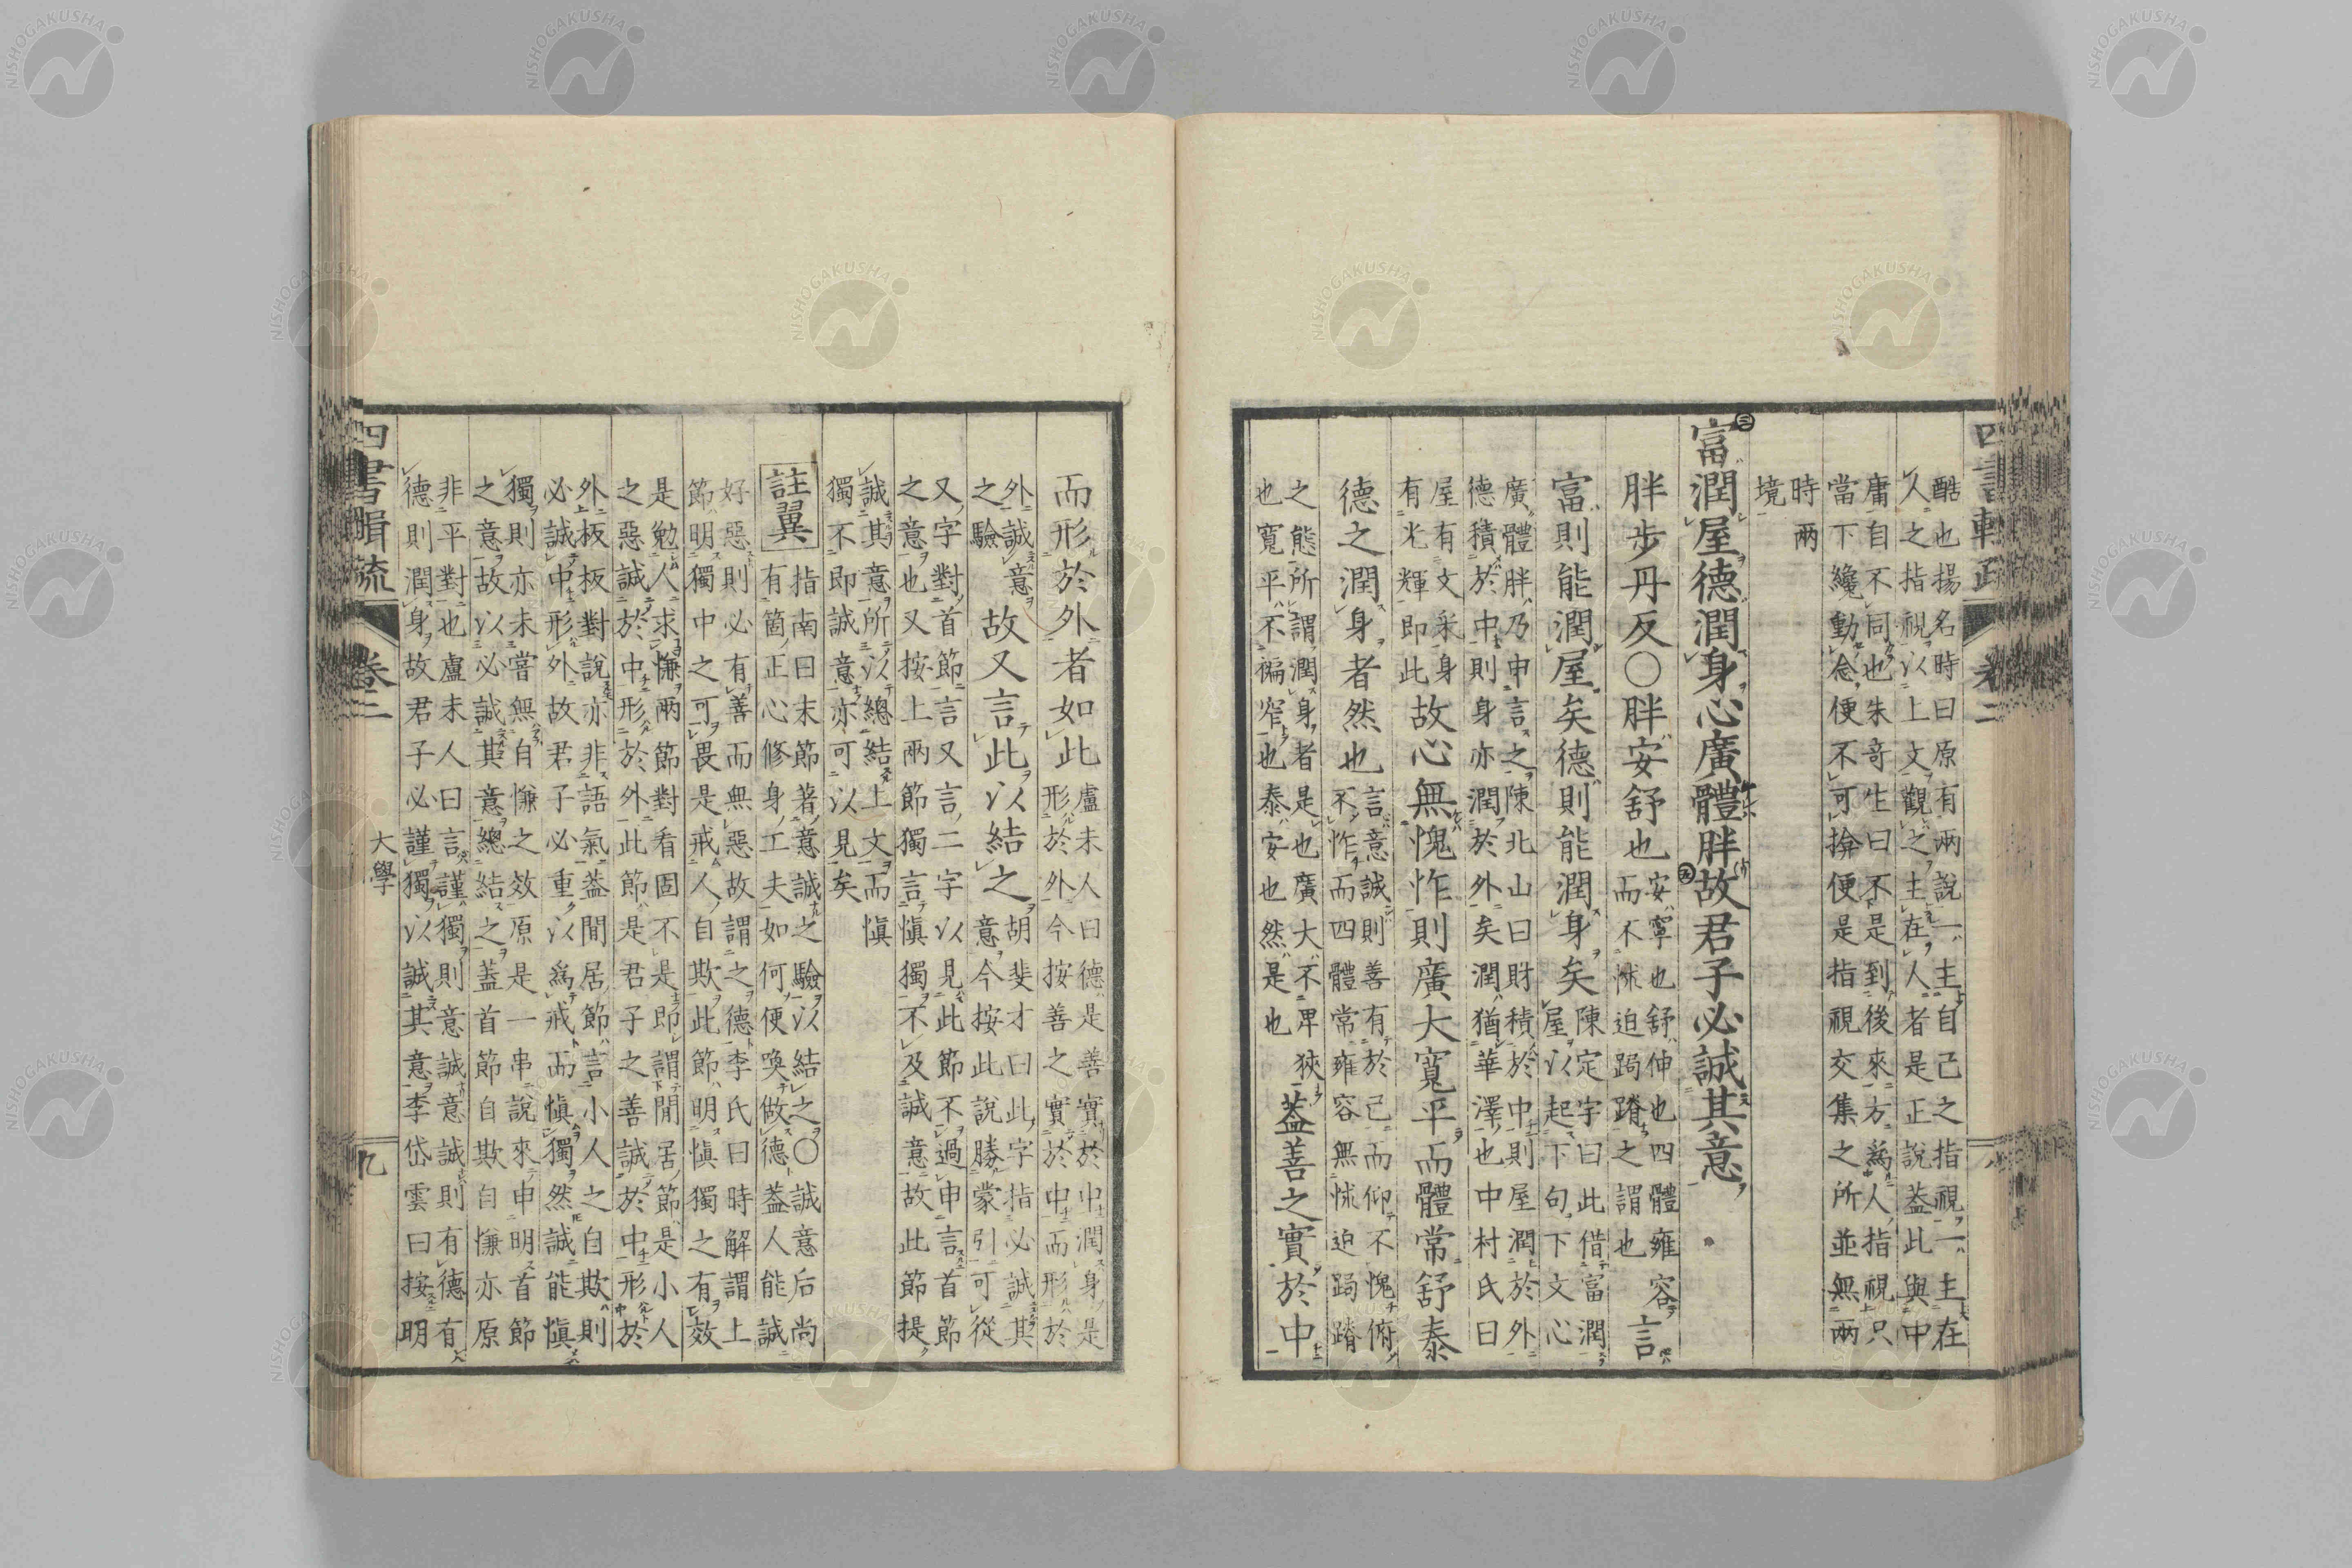 酷也揚名時曰原有兩説一主自己之指視一主在
人之指視以上文觀之主在人者是正說蓋此與中
庸自不同也朱奇生曰不是到後來方爲人指視只
當下纔動念便不可揜便是指視交集之所並無兩
時兩
境
富潤屋德潤身心廣體胖故君子必誠其意
胖步丹反○胖安舒也
安寧也舒伸也四體雍容
而不怵迫跼蹐之謂也
言
富則能潤屋矣德則能潤身矣
陳定宇曰此借富潤
屋以起下句下文心
廣體胖乃申言之陳北山曰財積於中則屋潤於外
德積於中則身亦潤於外矣潤猶華澤也中村氏曰
屋有文采身
有光輝即此
故心無愧怍則廣大寬平而體常舒泰
德之潤身者然也
言意誠則善有於己而仰不愧俯
不怍而四體常雍容無怵迫跼蹐
之態所謂潤身者是也廣大不卑狹
也寬平不褊窄也泰安也然是也
蓋善之實於中
而形於外者如此
盧未人曰德是善實於中潤身是
形於外今按善之實於中而形於
外誠意
之驗
故又言此以結之
胡斐才曰此字指必誠其
意今按此說勝蒙引可從
又字對首節言又言二字以見此節不過申言首節
之意也又按上兩節獨言愼獨不及誠意故此節提
誠其意所以總結上文而愼
獨不即誠意亦可以見矣
註翼
指南曰末節著意誠之驗以結之○誠意后尚
有箇正心修身工夫如何便喚做德蓋人能誠
好惡則必有善而無惡故謂之德李氏曰時解謂上
節明獨中之可畏是戒人自欺此節明愼獨之有效
是勉人求慊兩節對看固不是即謂閒居節是小人
之惡誠於中形於外此節是君子之善誠於中形於
外板板對說亦非語氣蓋閒居節言小人之自欺則
必誠中形外故君子必重以爲戒而愼獨然誠能愼
獨則亦未嘗無自慊之效原是一串說來申明首節
之意故以必誠其意總結之蓋首節自欺自慊亦原
非平對也盧未人曰言謹獨則意誠意誠則有德有
德則潤身故君子必謹獨以誠其意李岱雲曰按明
四書輯疏
卷二
大學
九